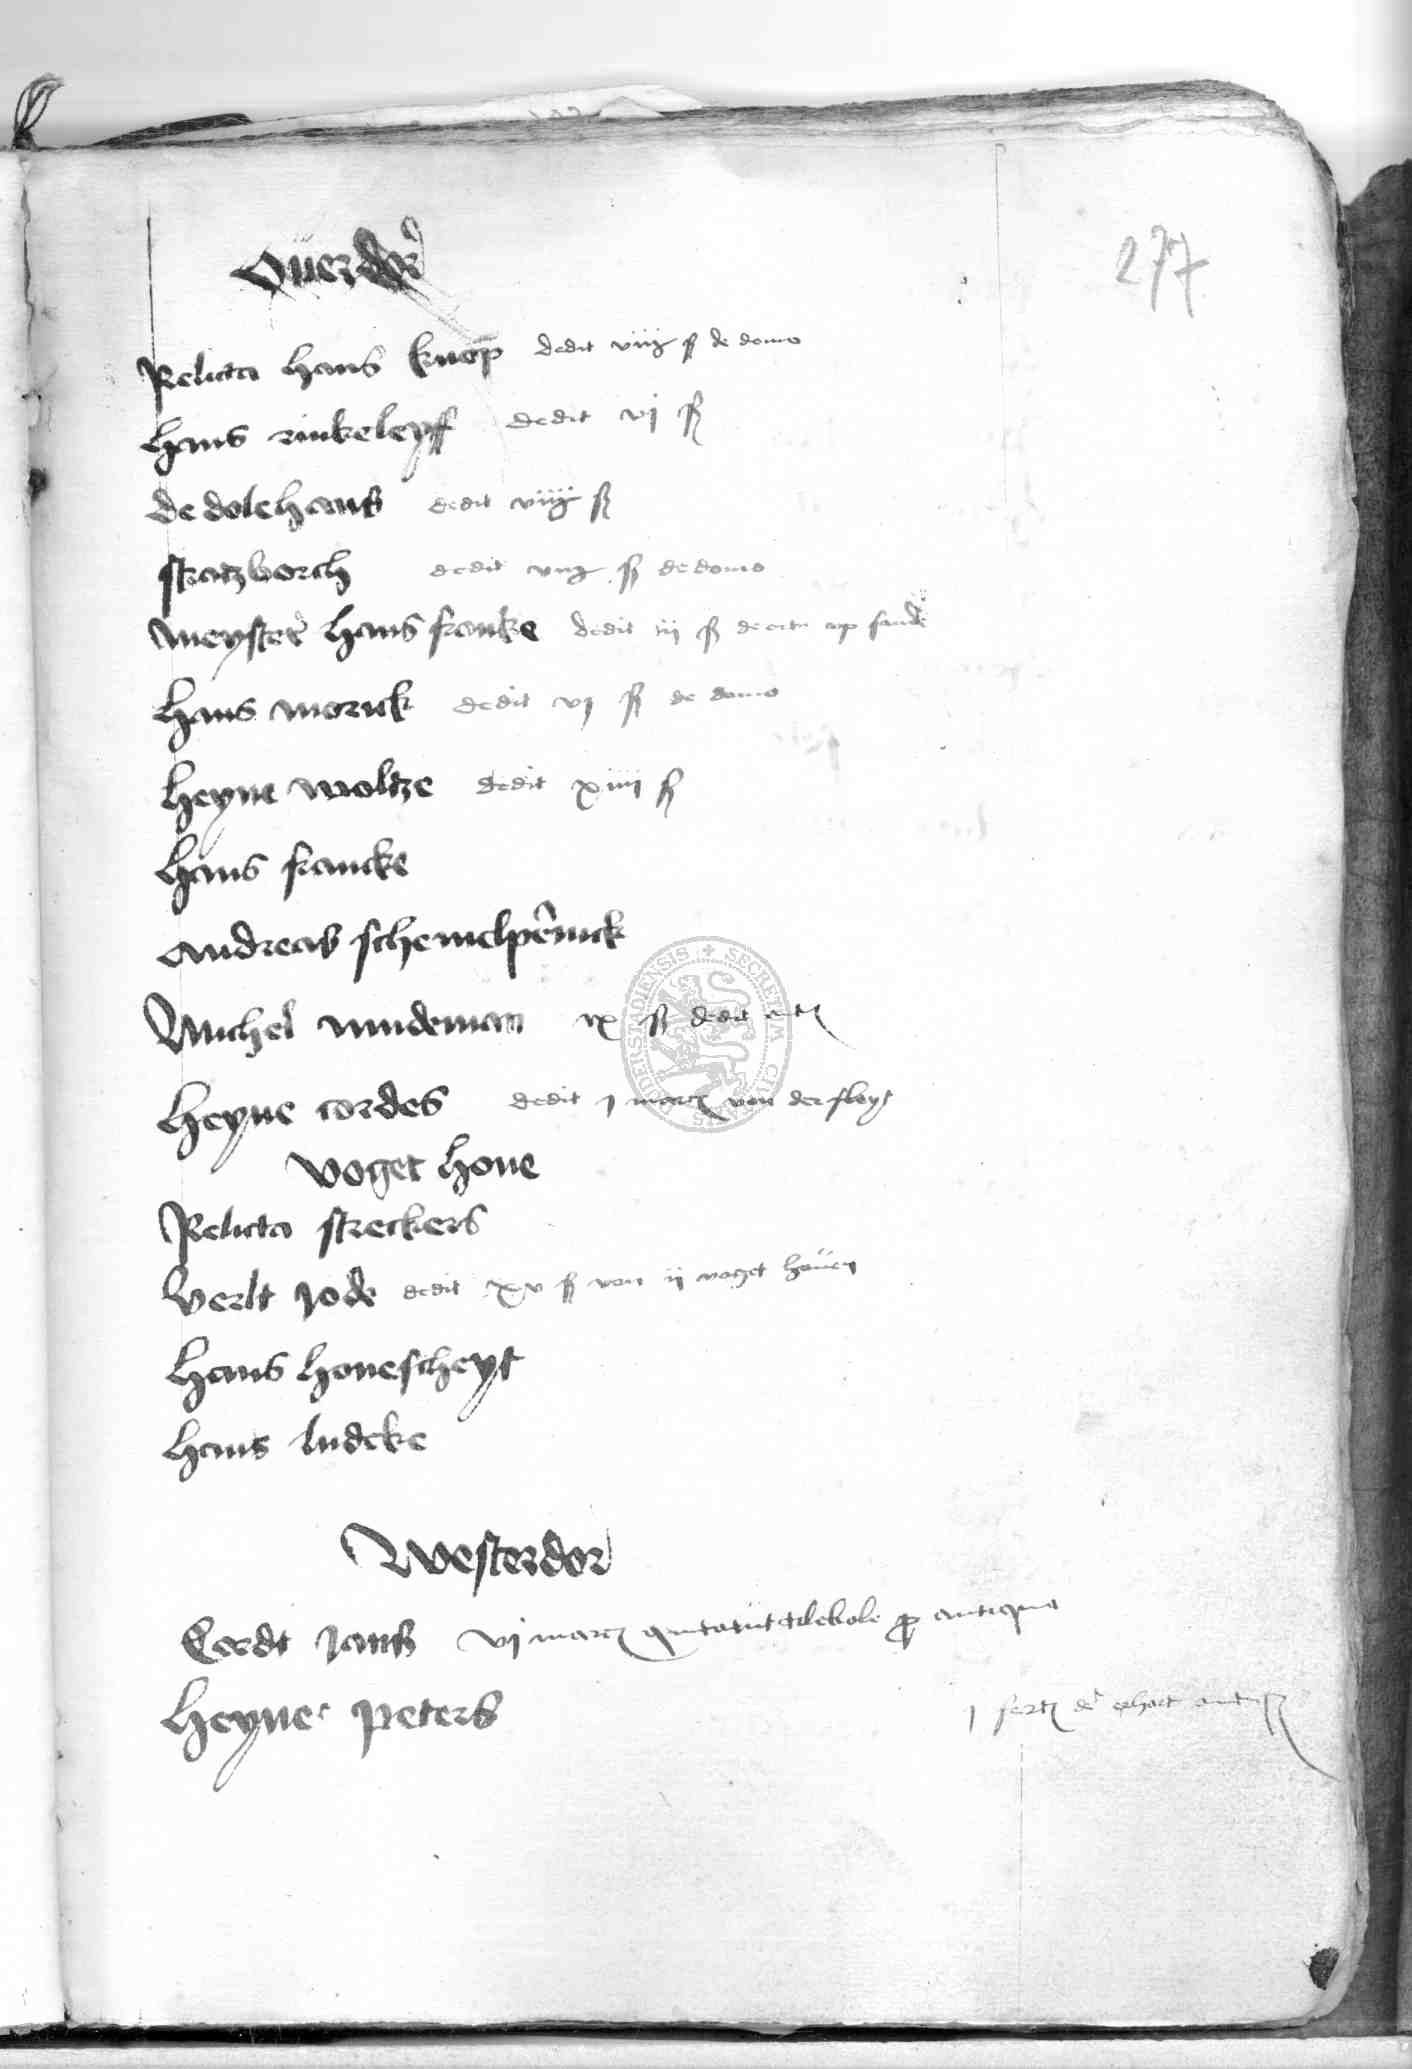 277
Ouerdor
Relicta hans knop dedit viiij ß de domo
hans rinkeleyff dedit vj ß
de dolehans dedit viiij ß
stratzborch dedit viij ß de domo
meyster hans franke dedit iij ß de up sande
hans morick dedit vj ß de domo
heyne woltze dedit xiiij ß
hans francke
andreas schemelpennick
Michel mindeman ix ß dedit
heyne cordes dedit j marc von der
voget houe
Relicta streckers
Verlt jode dedit xv ß von ij voget houen
hans houescheyt
hans ludeke
Westerdor
Cordt jans vj marc antiquo
heyne peters j fert
SECRETUM CIVITATIS DUDERSTADIENSIS